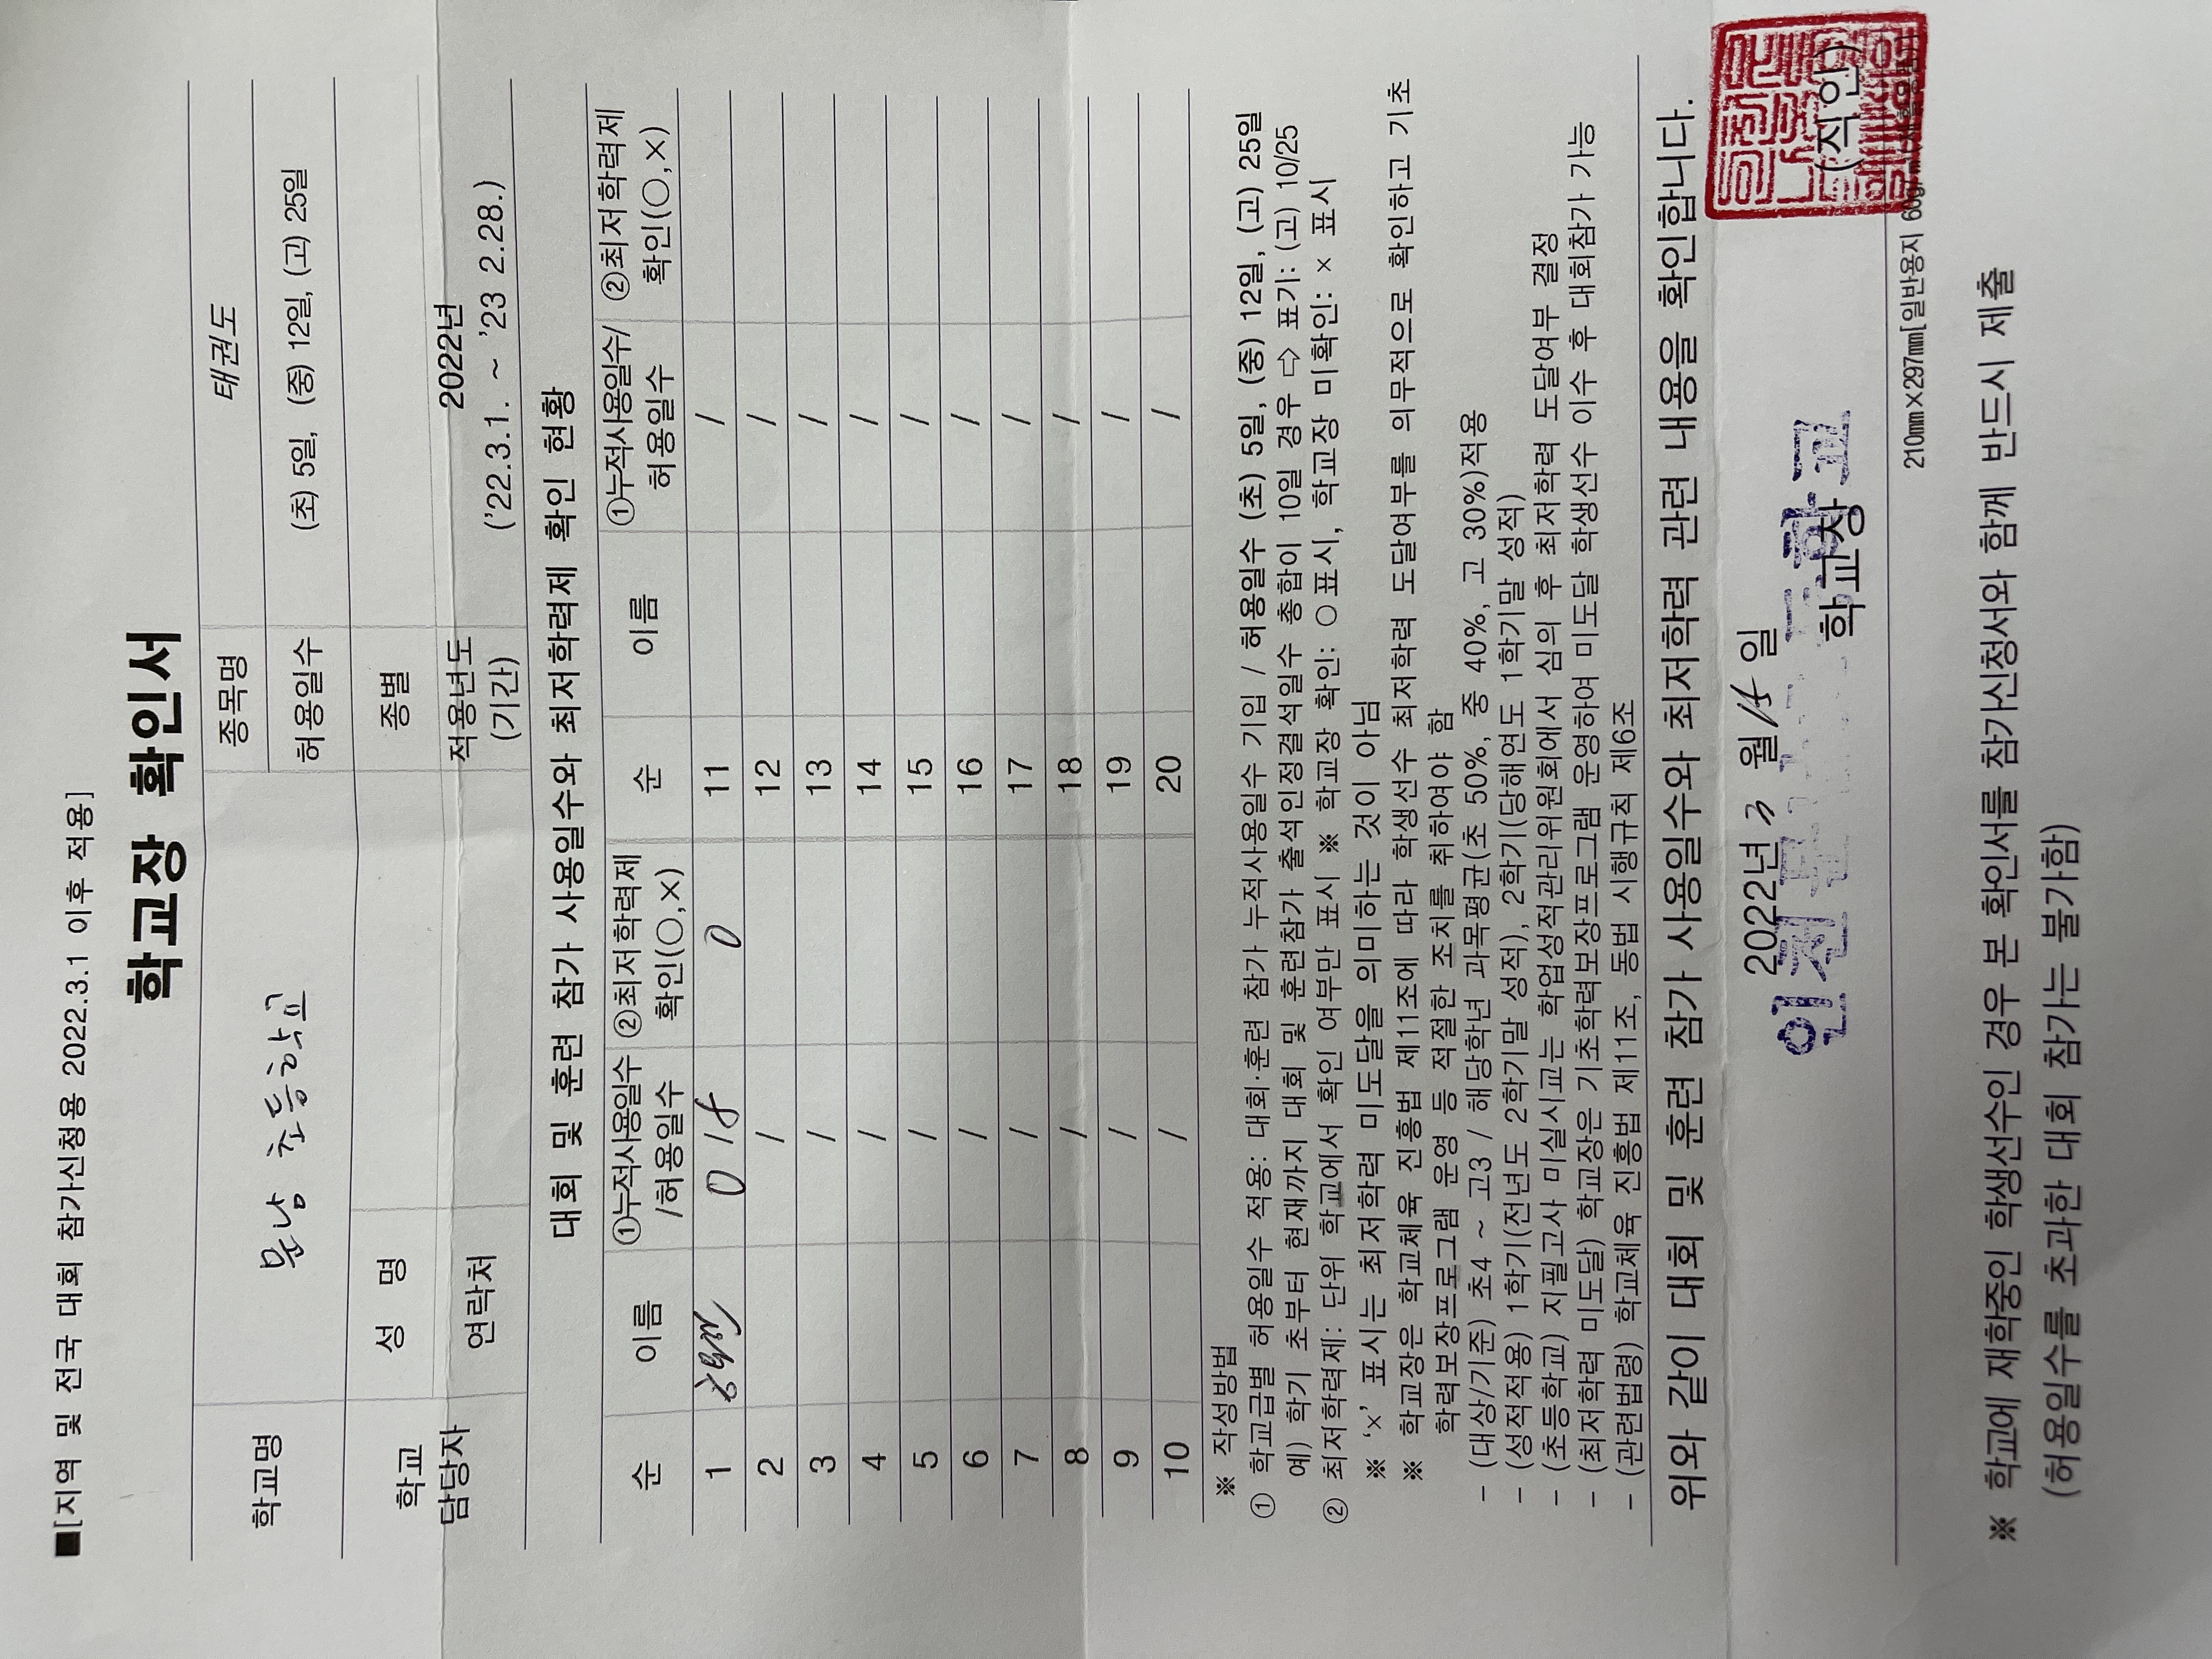 ■[지역 및 전국 대회 참가신청용 2022.3.1 이후 적용]
학교장 확인서
학교명 문남 초등학교 종목명 태권도
허용일수 (초) 5일, (중) 12일, (고) 25일
학교 담당자 성 명 종별
연락처 적용년도 (기간) 2022년 ('22.3.1. ~ '23 2.28.)
대회 및 훈련 참가 사용일수와 최저학력제 확인 현황
순 이름 ①누적사용일수 /허용일수 ②최저학력제 확인(○,×) 순 이름 ①누적사용일수/ 허용일수 ②최저학력제 확인(○,×)
1 0 / 5 0 11 /
2 / 12 /
3 / 13 /
4 / 14 /
5 / 15 /
6 / 16 /
7 / 17 /
8 / 18 /
9 / 19 /
10 / 20 /
※ 작성방법
① 학교급별 허용일수 적용: 대회·훈련 참가 누적사용일수 기입 / 허용일수 (초) 5일, (중) 12일, (고) 25일
예) 학기 초부터 현재까지 대회 및 훈련참가 출석인정결석일수 총합이 10일 경우 ⇨ 표기: (고) 10/25
② 최저학력제: 단위 학교에서 확인 여부만 표시 ※ 학교장 확인: ○ 표시, 학교장 미확인: × 표시
※ '×' 표시는 최저학력 미도달을 의미하는 것이 아님
※ 학교장은 학교체육 진흥법 제11조에 따라 학생선수 최저학력 도달여부를 의무적으로 확인하고 기초
학력보장프로그램 운영 등 적절한 조치를 취하여야 함
- (대상/기준) 초4 ~ 고3 / 해당학년 과목평균(초 50%, 중 40%, 고 30%)적용
- (성적적용) 1학기(전년도 2학기말 성적), 2학기(당해연도 1학기말 성적)
- (초등학교) 지필고사 미실시교는 학업성적관리위원회에서 심의 후 최저학력 도달여부 결정
- (최저학력 미도달) 학교장은 기초학력보장프로그램 운영하여 미도달 학생선수 이수 후 대회참가 가능
- (관련법령) 학교체육 진흥법 제11조, 동법 시행규칙 제6조
위와 같이 대회 및 훈련 참가 사용일수와 최저학력 관련 내용을 확인합니다.
2022년 3 월 15 일
학교장 (직인)
210㎜×297㎜[일반용지 60g/㎡(재활용품)]
※ 학교에 재학중인 학생선수인 경우 본 확인서를 참가신청서와 함께 반드시 제출
(허용일수를 초과한 대회 참가는 불가함)